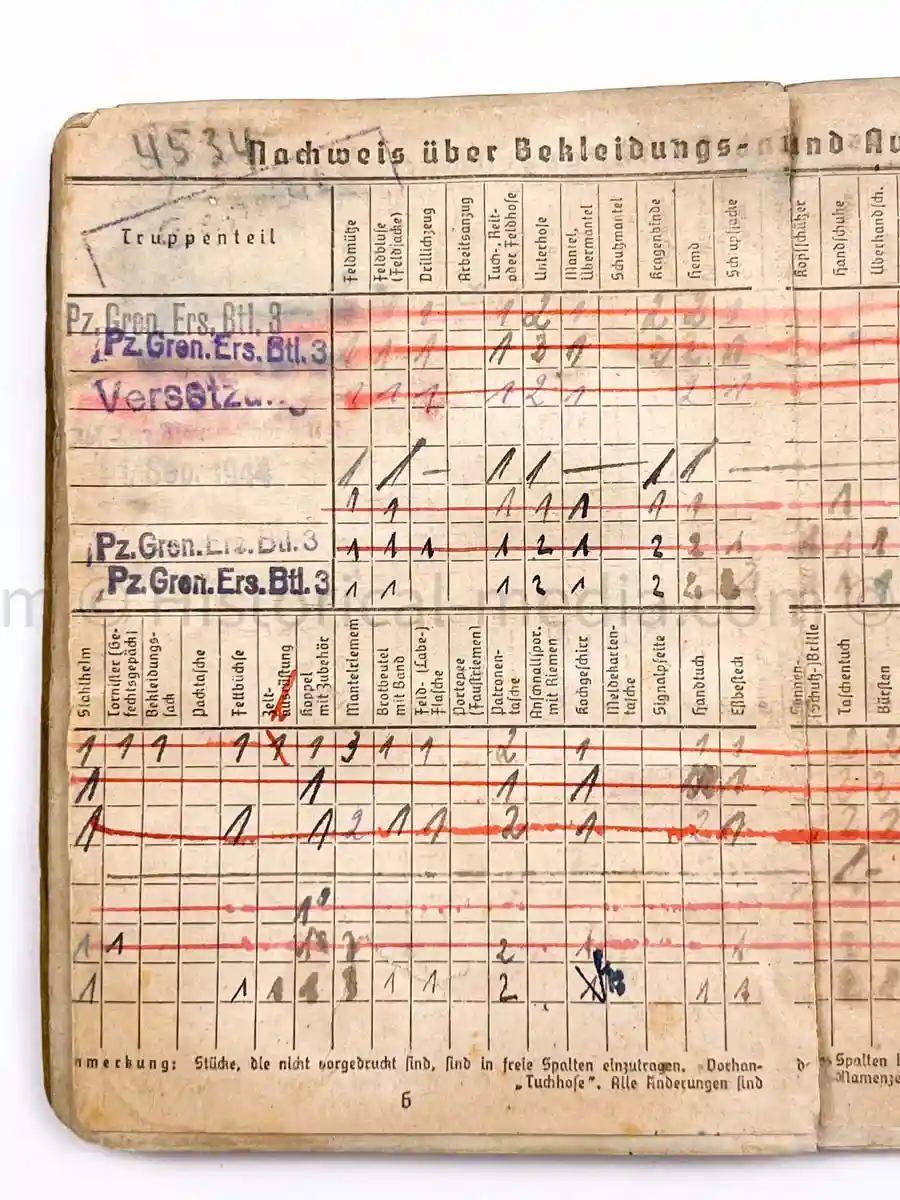 4534
Nachweis über Bekleidungs- und Au
Truppenteil
Feldmütze
Feldbluse (Feldjacke)
Drillichzeug
Arbeitsanzug
Tuch-, Reit- oder Feldhose
Unterhose
Mantel, Übermantel
Schutzmantel
Kragenbinde
Hemd
Schupfjacke
Kopfschützer
Handschuhe
Überhandsch.
Pz. Gren. Ers. Btl. 3 1 1 2 1 2 2 1
Pz.Gren.Ers.Btl.3 1 1 1 1 3 1 2 2 1
Versetzung 1 1 1 1 2 1 2 1
Sep. 1944 1 1 – 1 1 — 1 1 —
1 1 1 1 1 1 1 1
Pz.Gren.Ers.Btl.3 1 1 1 1 2 1 2 2 1 1 1
Pz.Gren.Ers.Btl.3 1 1 1 2 1 2 2 1
Stahlhelm
Tornister (Gefechtsgepäck)
Bekleidungssack
Packtasche
Fettbüchse
Zeltausrüstung
Koppel mit Zubehör
Mantelriemen
Brotbeutel mit Band
Feld- (Labe-) Flasche
Portepee (Faustriemen)
Patronentasche
Anschnallspor. mit Riemen
Kochgeschirr
Meldekartentasche
Signalpfeife
Handtuch
Eßbesteck
Sonnen- (Schutz-) Brille
Taschentuch
Bürsten
1 1 1 1 1 1 3 1 1 2 1 1 1 2 2
1 1 1 1 1 2 2
1 1 1 2 1 1 2 1 2 1 2 2
1 –
1
1 1 2 1 1
1 1 1 1 3 1 1 2 X 1 1
nmerkung: Stücke, die nicht vorgedruckt sind, sind in freie Spalten einzutragen. Vorhan- Spalten
„Tuchhose". Alle Änderungen sind Namenze
6